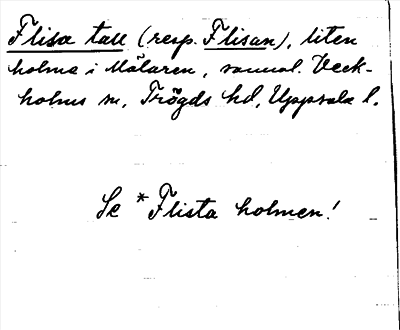 Flisa tall (resp. Flisan), liten
holme i Mälaren, numol. Veck-
holms sn, Trögds hd, Uppsala l.
Se *Flista holmen!